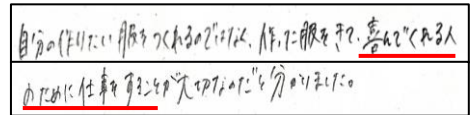 自分の作りたい服をつくれるのではなく、作った服をきて、喜んでくれる人
のために仕事をすることが大切なのだと分かりました。